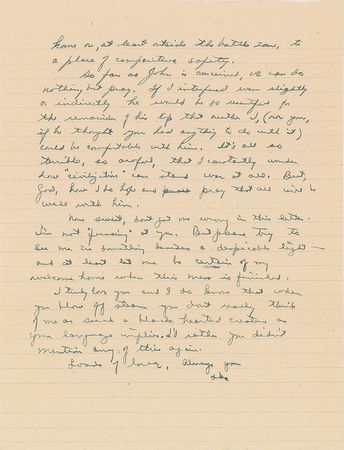 home or, at least outside the battle zone, to
a place of comparative safety.
So far as John is concerned, we can do
nothing but pray. If I interfered even slightly
or indirectly he would be so resentful for
the remainder of his life that neither I, (nor you,
if he thought you had anything to do with it)
could be comfortable with him. It's all so
terrible, so awful, that I constantly wonder
how "civilization" can stand war at all. But,
God, how I do hope and pray that all will be
well with him.
Now sweet, don't get me wrong in this letter.
I'm not "fussing" at you. But please try to
see me in something besides a despicable light -
and at least let me be certain of my
welcome home when this mess is finished.
I truly love you and I do know that when
you blow off steam you don't really think
of me as such a black hearted creature as
your language implies. I'd rather you didn't
mention any of this again.
Loads of love, Always your
Ike